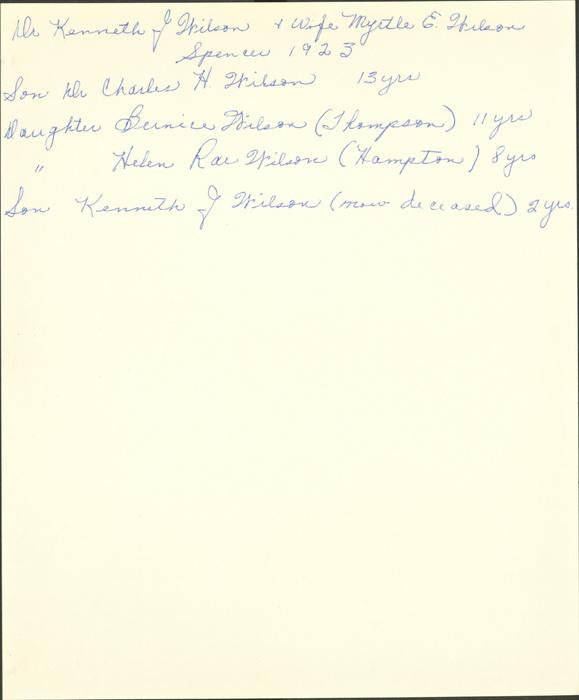 Dr Kenneth J Wilson & Wife Myrtle E. Wilson
Spencer 1923
Son Dr Charles H. Wilson 13 yrs
Daughter Bernice Wilson (Thompson) 11 yrs
" Helen Rae Wilson (Hampton) 8 yrs
Son Kenneth J Wilson (now deceased) 2 yrs.